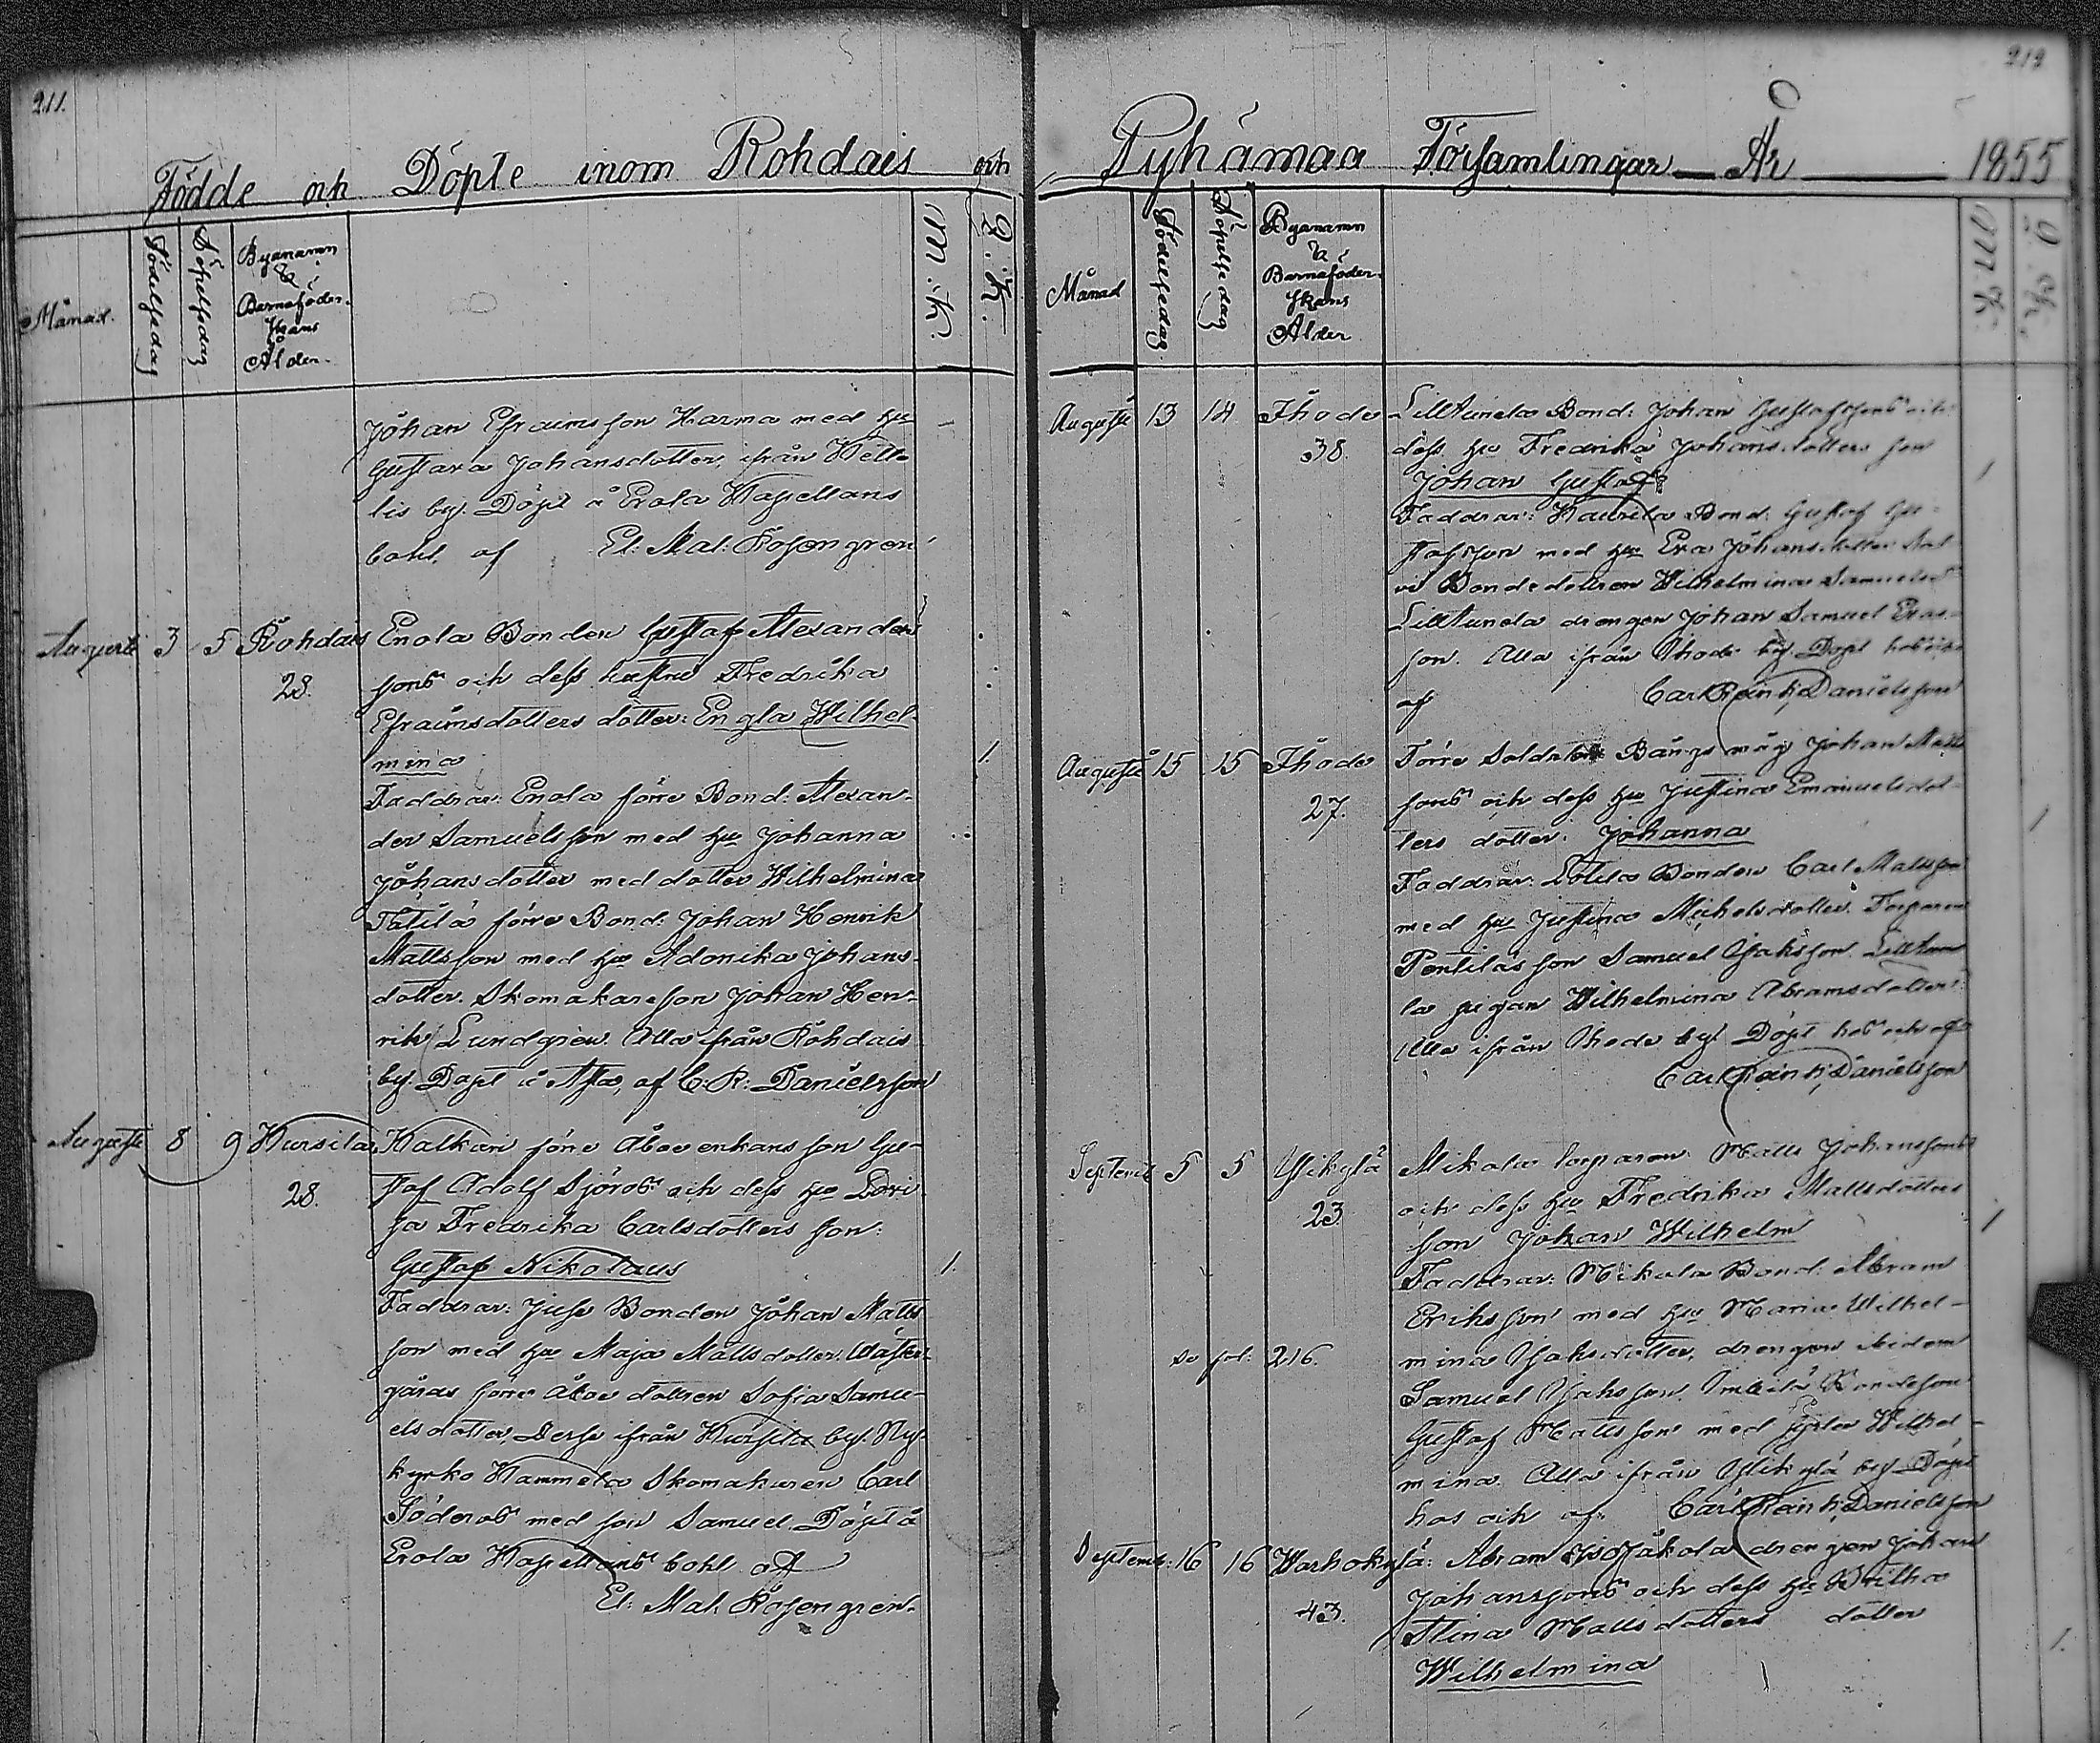 211.
Födde och Döpte inom Rohdais och
Månad.
Födelsedag
Döpelsedag
Byanamn
&
Barnaföder-
skans
Ålder
M. K.
Q. K.
Johan Efraimsson Karma med hu
Gustava Johansdotter, ifrån
lis by. Döpt å Erola Kapellans
bohl, af El: Mal: Rosengren
Augusti 3 5 Rohdais Enola Bonden Gustaf Alexanders
28. sons och dess hustru Fredrika
Efraimsdotters dotter: Engla Wilhel-
mina 1.
Faddrar: Enola förre Bond: Alexan-
der Samuelsson med hu Johanna
Johansdotter med dotter Wilhelmina
Tätilä förre Bond: Johan Henrik
Mattsson med hu Adonika Johans-
dotter. Skomakareson Johan Hen-
rik Lundgren. Alla ifrån Rohdais
by. Döpt å af C: R: Danielsson
Augusti 8 9 Kursila Kalkari förre Åboverkans son Gu-
28. staf Adolf Sjöros och dess hu Lovi-
sa Fredrika Carlsdotters son:
Gustaf Nikolaus 1.
Faddrar: Juse Bonden Johan Matts
son med hu Maja Mattsdotter. Wäster-
gårds förre Åbos dottren Sofia Samu-
elsdotter, Desse ifrån Kursila by. Ny-
kyrko Hammela Skomakaren Carl
Söderos med son Samuel. Döpt å
Erola Kapellans bohl af
El: Mal: Rosengren.
212
Pyhämaa Församlingar År 1855
Månad
Födelsedag.
Döpelsedag
Byanamn
&
Barnaföder-
skans
Ålder
M. K.
Q. K.
Augusti 13 14 Ihode Lilltunela Bond: Johan Gustafssons och
38. dess hu Fredrika Johansdotters son
Johan Gustaf 1
Faddrar: Kaurila Bond: Gustaf Gu-
stafsson med hu Eva Johansdotter
Bondedottren Wilhelmina Samuelsd
Lilltunela drengen Johan Samuel Eras-
son. Alla ifrån Ihode by. Döpt hos och
af Carl Reinh: Danielsson
Augusti 15 15 Ihode Förre Soldaten Bångs måg Johan Matts
27. sons och dess hu Justina Emanuelsdot-
ters dotter. Johanna 1
Faddrar: Bonden Carl Mattsson
med hu Justina Michelsdotter. Torparen
Pentiläs son Samuel Isaksson. Lilltune
la pigan Wilhelmina Abramsdotter:
Alla ifrån Ihode by. Döpt hos och af
Carl Reinh: Danielsson
Septemb 5 5 Ylikylä Mikola torparen Matts Johanssons
23. och dess hu Fredrika Mattsdotters
son Johan Wilhelm 1
Faddrar: Mikola Bond: Abram
Eriksson med hu Maria Wilhel-
se fol: 216. mina Isaksdotter, drengen
Samuel Isaksson. Bondeson
Gustaf Mattsson med syster Wilhel-
mina. Alla ifrån Ylikylä by. Döpt
hos och af Carl Reinh: Danielsson
Septemb: 16 16 Warhokylä: Abram Jåkola drengen Johan
43. Johanssons och dess hu Britha
Stina Mattsdotters dotter
Wilhelmina 1.